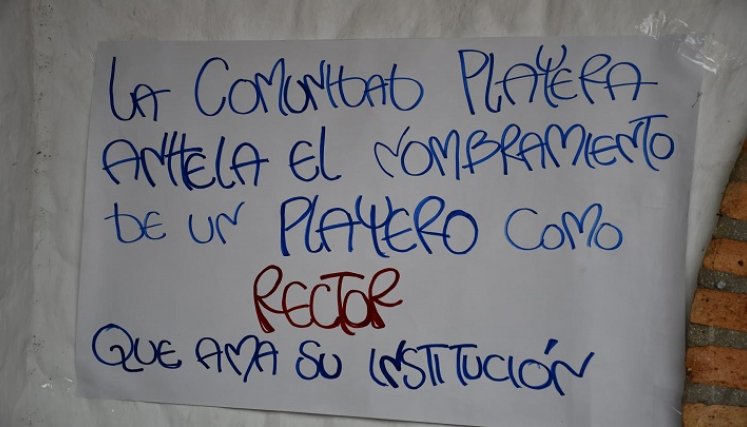 LA COMUNIDAD PLAYERA
ANHELA EL NOMBRAMIENTO
DE UN PLAYERO COMO
RECTOR
QUE AMA SU INSTITUCIÓN